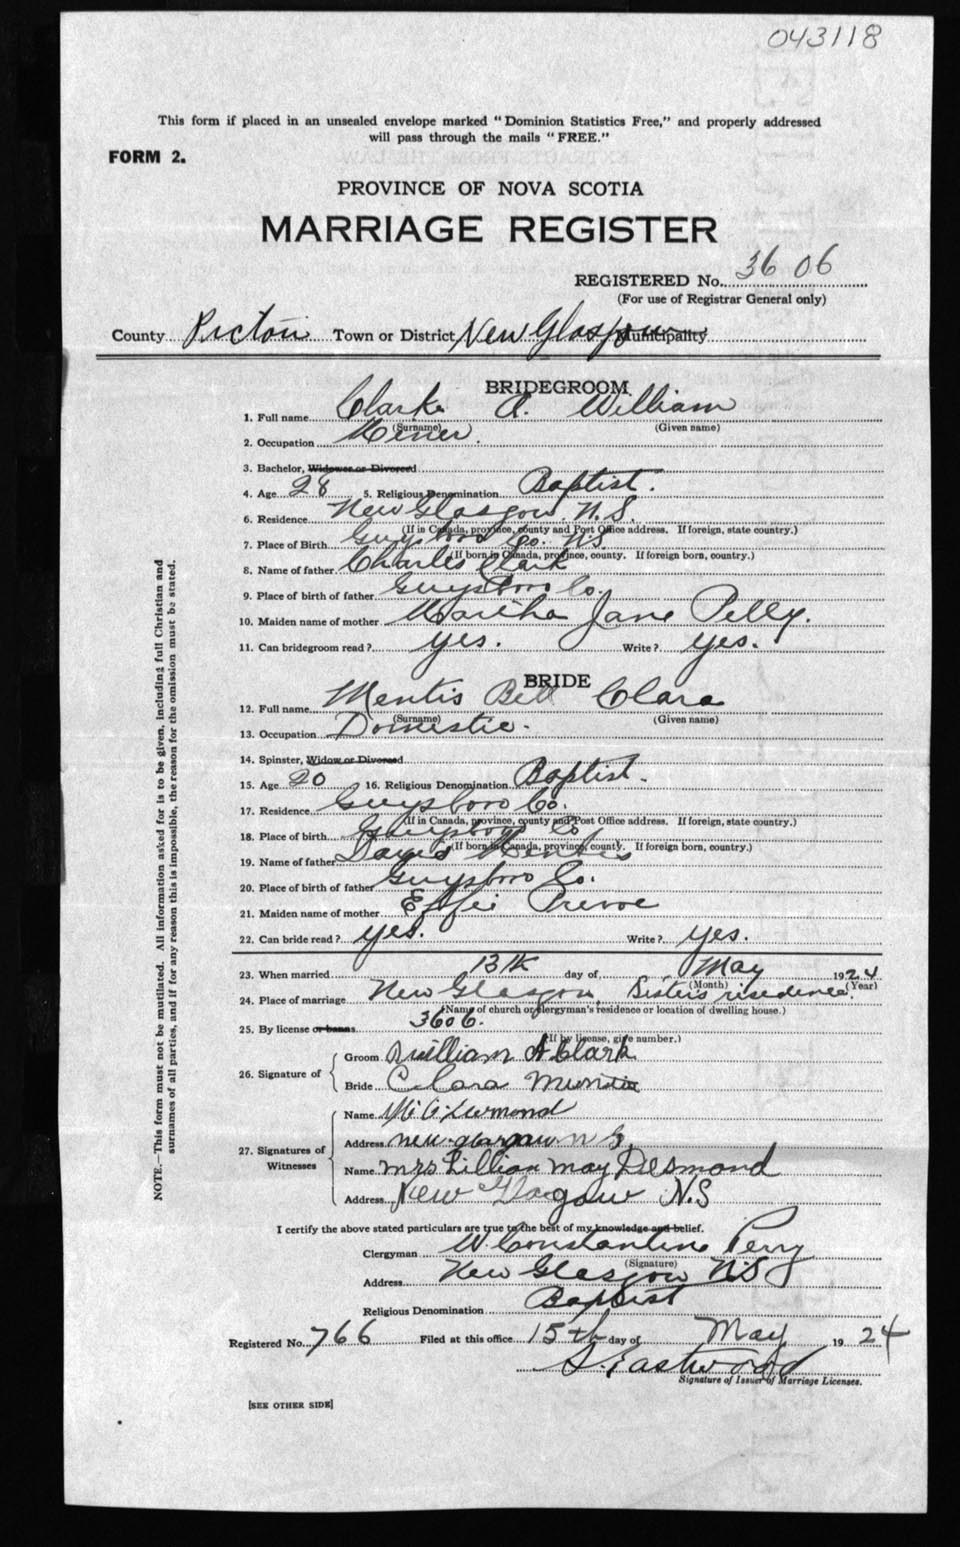 043118
This form if placed in an unsealed envelope marked "Dominion Statistics Free," and properly addressed
will pass through the mails "FREE."
FORM 2.
PROVINCE OF NOVA SCOTIA
MARRIAGE REGISTER
REGISTERED No. 3606
(For use of Registrar General only)
County Pictou Town or District New Glasgow Municipality
BRIDEGROOM
1. Full name Clark A. William
(Surname) (Given name)
2. Occupation Miner.
3. Bachelor, Widower or Divorced
4. Age 28 5. Religious Denomination Baptist.
6. Residence New Glasgow. N.S.
(If in Canada, province, county and Post Office address. If foreign, state country.)
7. Place of Birth Guysboro Co. NS
(If born in Canada, province, county. If foreign born, country.)
8. Name of father Charles Clark
9. Place of birth of father Guysboro Co.
10. Maiden name of mother Martha Jane Pelly.
11. Can bridegroom read? yes. Write? yes.
BRIDE
12. Full name Mentis Bell Clara
(Surname) (Given name)
13. Occupation Domestic.
14. Spinster, Widow or Divorced
15. Age 20 16. Religious Denomination Baptist.
17. Residence Guysboro Co.
(If in Canada, province, county and Post Office address. If foreign, state country.)
18. Place of birth Guysboro Co
(If born in Canada, province, county. If foreign born, country.)
19. Name of father David Mentis
20. Place of birth of father Guysboro Co.
21. Maiden name of mother Effie
22. Can bride read? yes. Write? yes.
23. When married 13th day of May 1924
(Month) (Year)
24. Place of marriage New Glasgow, Sister's risedence.
(Name of church or clergyman's residence or location of dwelling house.)
25. By license or banns 3606.
(If by license, give number.)
26. Signature of Groom William A Clark
Bride Clara
27. Signatures of Witnesses
Name
Address new glasgow n S.
Name Mrs Lillian may Desmond
Address New Glasgow N.S
I certify the above stated particulars are true to the best of my knowledge and belief.
Clergyman W. Constantine Perry
(Signature)
Address New Glasgow N.S
Religious Denomination Baptist
Registered No. 766 Filed at this office 15th day of May 1924
S. Eastwood
Signature of Issuer of Marriage Licenses.
[SEE OTHER SIDE]
NOTE.—This form must not be mutilated. All information asked for is to be given, including full Christian and
surnames of all parties, and if for any reason this is impossible, the reason for the omission must be stated.